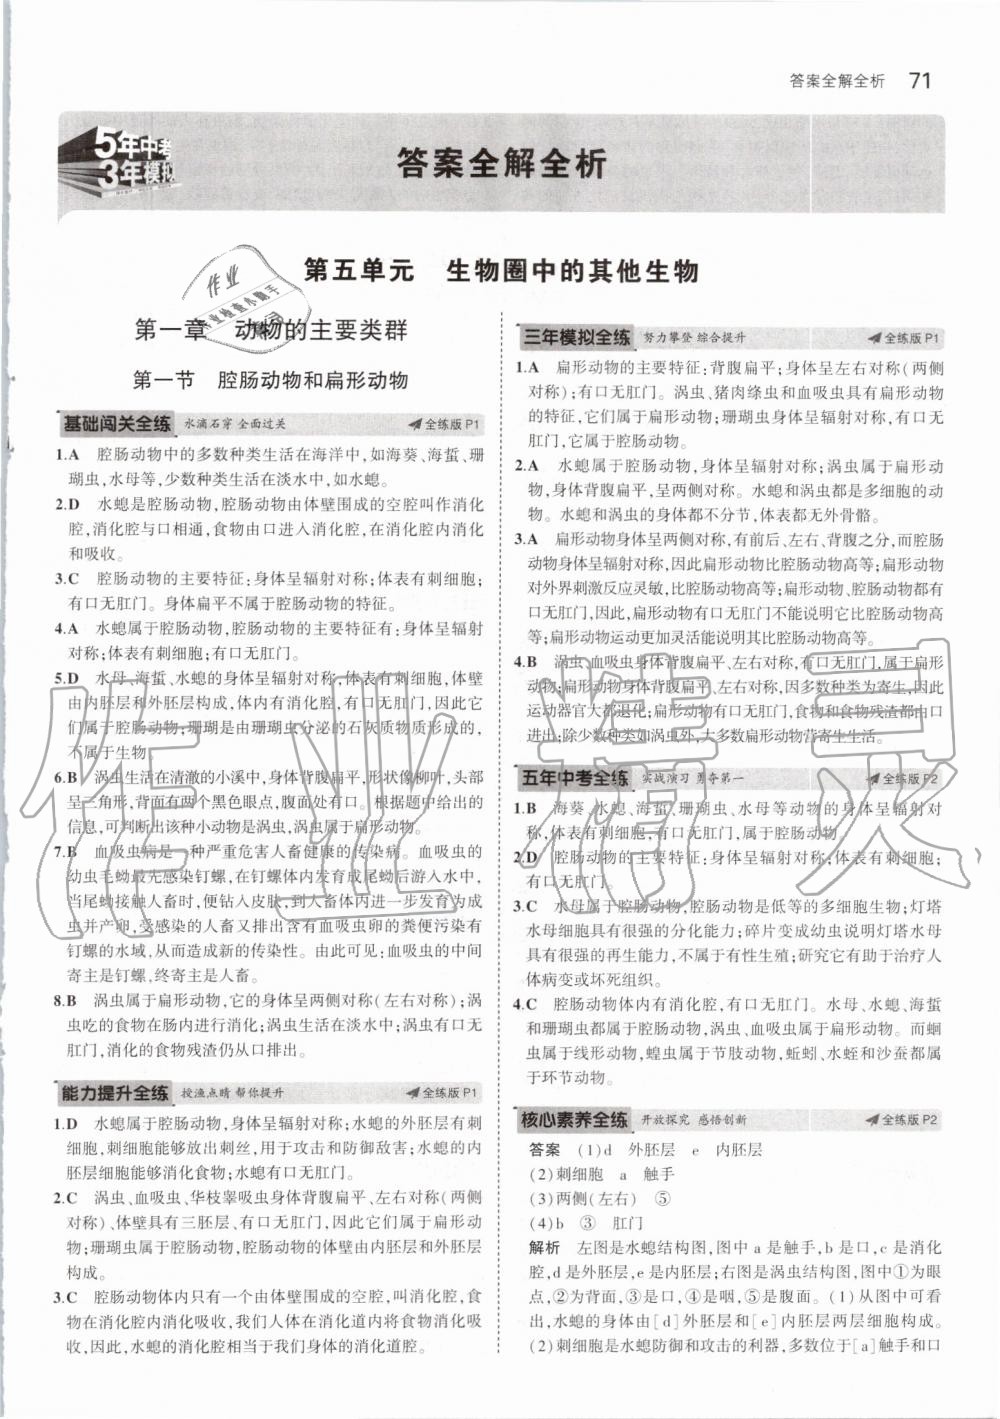 答案全解全析 71
5年中考
3年模拟
答案全解全析
第五单元 生物圈中的其他生物
第一章 动物的主要类群
第一节 腔肠动物和扁形动物
基础闯关全练 水滴石穿 全面过关 全练版P1
1.A 腔肠动物中的多数种类生活在海洋中,如海葵、海蜇、珊
瑚虫,水母等,少数种类生活在淡水中,如水螅。
2.D 水螅是腔肠动物,腔肠动物由体壁围成的空腔叫作消化
腔,消化腔与口相通,食物由口进入消化腔,在消化腔内消化
和吸收。
3.C 腔肠动物的主要特征:身体呈辐射对称;体表有刺细胞;
有口无肛门。身体扁平不属于腔肠动物的特征。
4.A 水螅属于腔肠动物,腔肠动物的主要特征有:身体呈辐射
对称;体表有刺细胞;有口无肛门。
5.D 水母、海蜇、水螅的身体呈辐射对称,体表有刺细胞,体壁
由内胚层和外胚层构成,体内有消化腔,有口无肛门,因此它
们属于腔肠动物;珊瑚是由珊瑚虫分泌的石灰质物质形成的,
不属于生物。
6.B 涡虫生活在清澈的小溪中,身体背腹扁平,形状像柳叶,头部
呈三角形,背面有两个黑色眼点,腹面处有口。根据题中给出的
信息,可判断出该种小动物是涡虫,涡虫属于扁形动物。
7.B 血吸虫病是一种严重危害人畜健康的传染病。血吸虫的
幼虫毛蚴最先感染钉螺,在钉螺体内发育成尾蚴后游入水中,
当尾蚴接触人畜时,便钻入皮肤,到人畜体内进一步发育为成
虫并产卵,受感染的人畜又排出含有血吸虫卵的粪便污染有
钉螺的水域,从而造成新的传染性。由此可见:血吸虫的中间
寄主是钉螺,终寄主是人畜。
8.B 涡虫属于扁形动物,它的身体呈两侧对称(左右对称);涡
虫吃的食物在肠内进行消化;涡虫生活在淡水中;涡虫有口无
肛门,消化的食物残渣仍从口排出。
能力提升全练 授渔点睛 帮你提升 全练版P1
1.D 水螅属于腔肠动物,身体呈辐射对称。水螅的外胚层有刺
细胞,刺细胞能够放出刺丝,用于攻击和防御敌害;水螅的内
胚层细胞能够消化食物;水螅有口无肛门。
2.C 涡虫、血吸虫、华枝睾吸虫身体背腹扁平、左右对称(两侧
对称)、体壁具有三胚层、有口无肛门,因此它们属于扁形动
物;珊瑚虫属于腔肠动物,腔肠动物的体壁由内胚层和外胚层
构成。
3.C 腔肠动物体内只有一个由体壁围成的空腔,叫消化腔,食
物在消化腔内消化吸收,我们人体在消化道内将食物消化吸
收,因此,水螅的消化腔相当于我们身体的消化道腔。
三年模拟全练 努力攀登 综合提升 全练版P1
1.A 扁形动物的主要特征:背腹扁平;身体呈左右对称(两侧
对称);有口无肛门。涡虫、猪肉绦虫和血吸虫具有扁形动物
的特征,它们属于扁形动物;珊瑚虫身体呈辐射对称,有口无
肛门,它属于腔肠动物。
2.A 水螅属于腔肠动物,身体呈辐射对称;涡虫属于扁形动
物,身体背腹扁平,呈两侧对称。水螅和涡虫都是多细胞的动
物。水螅和涡虫的身体都不分节,体表都无外骨骼。
3.A 扁形动物身体呈两侧对称,有前后、左右、背腹之分,而腔肠
动物身体呈辐射对称,因此扁形动物比腔肠动物高等;扁形动物
对外界刺激反应灵敏,比腔肠动物高等;扁形动物、腔肠动物都有
口无肛门,因此,扁形动物有口无肛门不能说明它比腔肠动物高
等;扁形动物运动更加灵活能说明其比腔肠动物高等。
4.B 涡虫、血吸虫身体背腹扁平、左右对称,有口无肛门,属于扁形
动物;扁形动物身体背腹扁平、左右对称,因多数种类为寄生,因此
运动器官大都退化;扁形动物有口无肛门,食物和食物残渣都由口
进出;除少数种类如涡虫外,大多数扁形动物营寄生生活。
五年中考全练 实战演习 勇夺第一 全练版P2
1.B 海葵、水螅、海蜇、珊瑚虫、水母等动物的身体呈辐射对
称,体表有刺细胞,有口无肛门,属于腔肠动物。
2.D 腔肠动物的主要特征:身体呈辐射对称;体表有刺细胞;
有口无肛门。
3.C 水母属于腔肠动物,腔肠动物是低等的多细胞生物;灯塔
水母细胞具有很强的分化能力;碎片变成幼虫说明灯塔水母
具有很强的再生能力,不属于有性生殖;研究它有助于治疗人
体病变或坏死组织。
4.C 腔肠动物体内有消化腔,有口无肛门。水母、水螅、海蜇
和珊瑚虫都属于腔肠动物,涡虫、血吸虫属于扁形动物。而蛔
虫属于线形动物,蝗虫属于节肢动物,蚯蚓、水蛭和沙蚕都属
于环节动物。
核心素养全练 开放探究 感悟创新 全练版P2
答案 (1)d 外胚层 e 内胚层
(2)刺细胞 a 触手
(3)两侧(左右) ⑤
(4)b ③ 肛门
解析 左图是水螅结构图,图中a是触手,b是口,c是消化
腔,d是外胚层,e是内胚层;右图是涡虫结构图,图中①为眼
点,②为背面,③是口,④是咽,⑤是腹面。(1)从图中可看
出,水螅的身体由[d]外胚层和[e]内胚层两层细胞构成。
(2)刺细胞是水螅防御和攻击的利器,多数位于[a]触手和口
作业
作业检查小助手
作业精灵